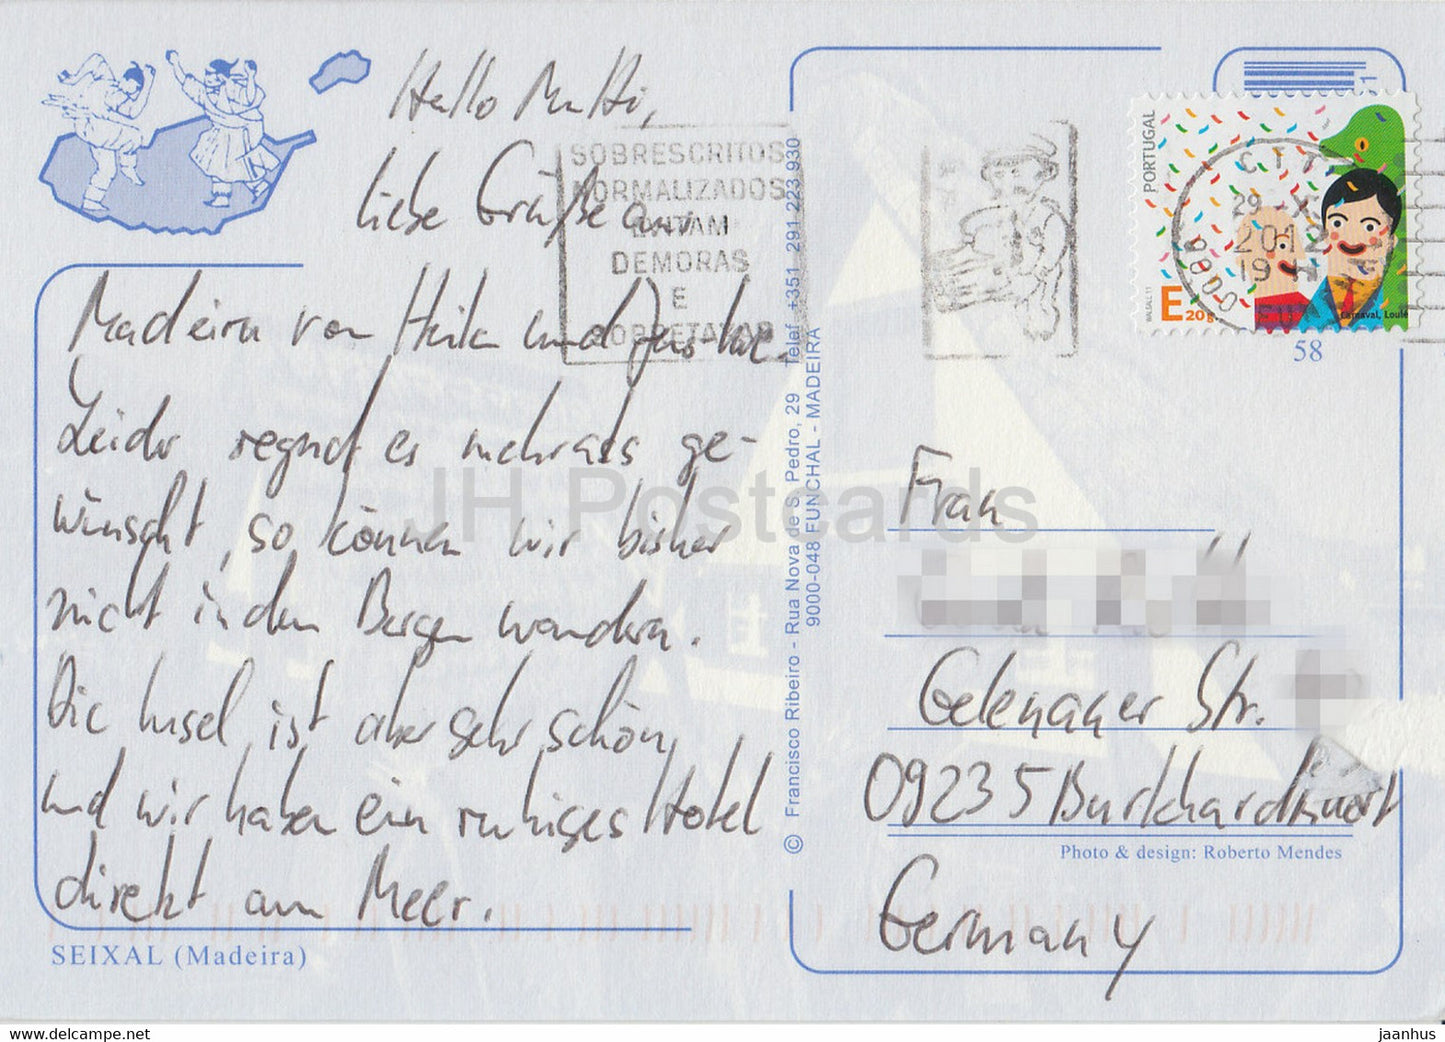 Hallo Mutti,
liebe Grüße aus
Madeira von Heike und
Leider regnet es mehr als ge-
wünscht, so können wir bisher
nicht in den Bergen wandern.
Die Insel ist aber sehr schön
und wir haben ein ruhiges Hotel
direkt am Meer.
SEIXAL (Madeira)
SOBRESCRITOS
NORMALIZADOS
EVITAM
DEMORAS
E
SOBRETAXAS
© Francisco Ribeiro - Rua Nova de S. Pedro, 29 Telef. +351 291 223 930
9000-048 FUNCHAL - MADEIRA
PORTUGAL
E 20g
Carnaval, Loulé
CTT
29 -X
2012
19 H
9800
58
Frau
Gelenauer Str.
09235 Burkhardtsdorf
Photo & design: Roberto Mendes
Germany
JH Postcards
https://www.ebay.de/str/jhpostcards
jaanhus